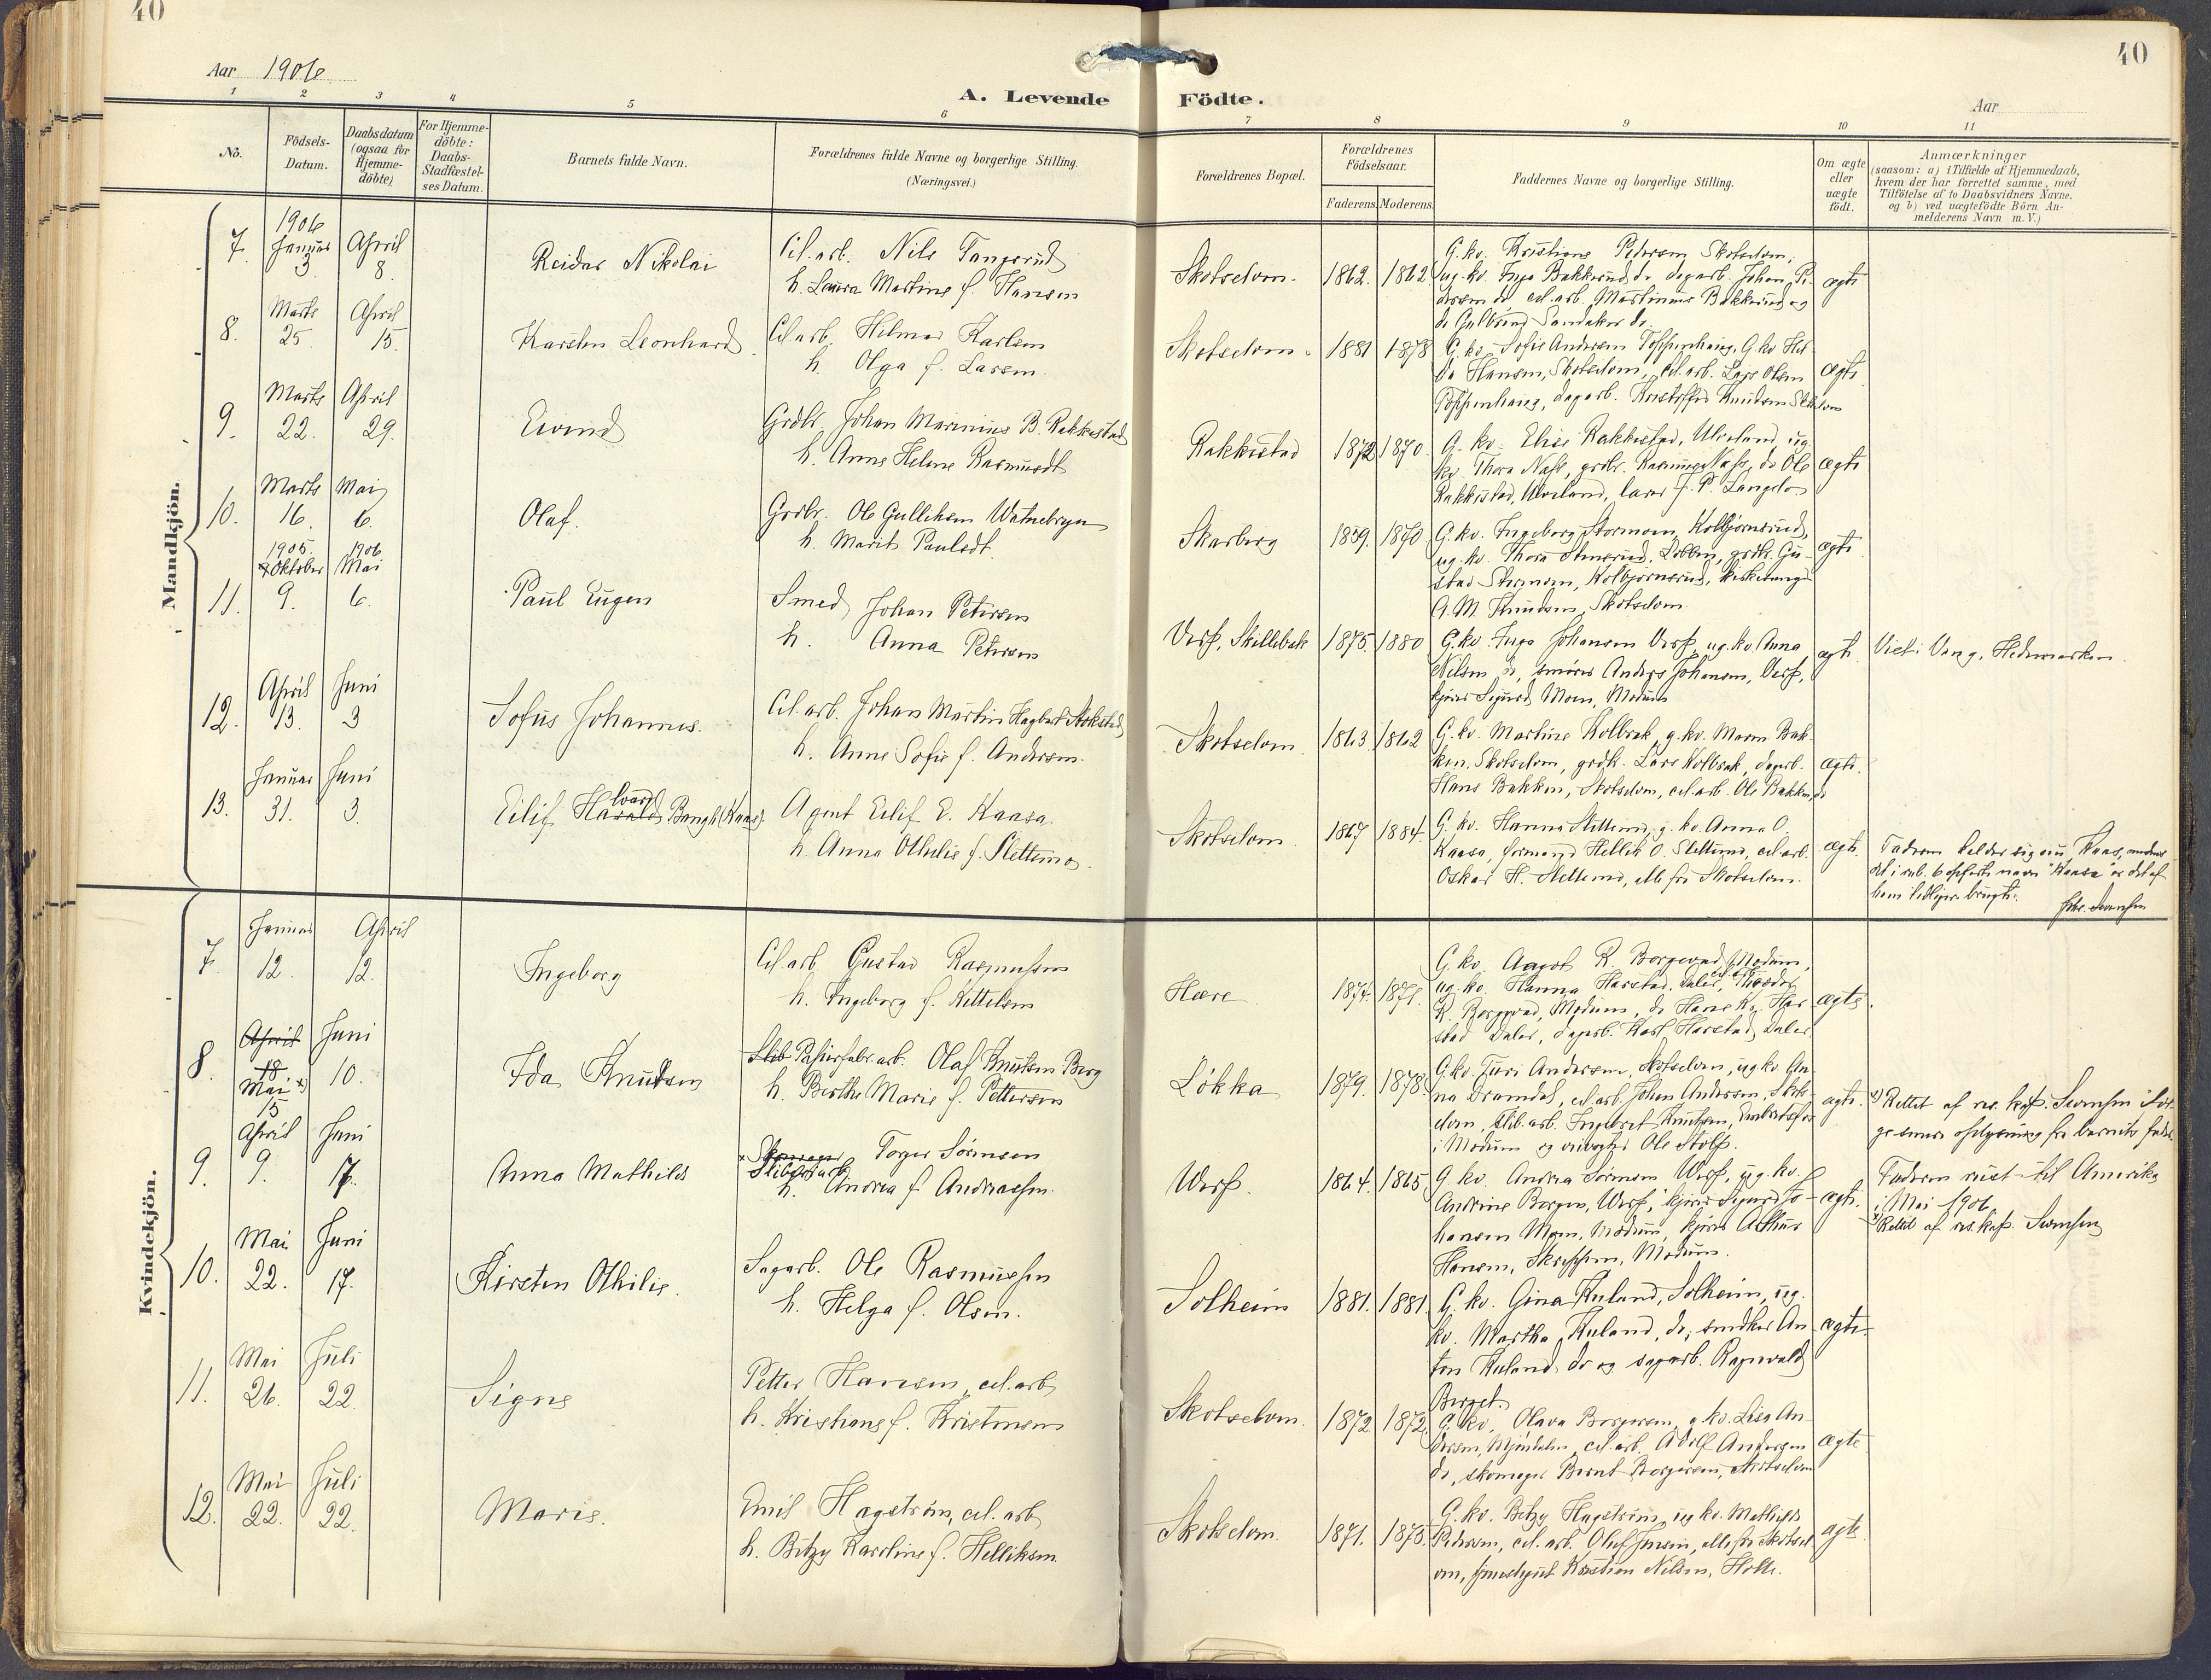 40
40
Aar 1906
A. Levende Födte.
Aar
1 2 3 4 5 6 7 8 9 10 11
No.
Födsels-Datum.
Daabsdatum (ogsaa for Hjemme-döbte)
For Hjemme-döbte: Daabs-Stadfæstel-ses Datum.
Barnets fulde Navn.
Forældrenes fulde Navne og borgerlige Stilling. (Næringsvei.)
Forældrenes Bopæl.
Forældrenes Födselsaar.
Faderens. Moderens.
Faddernes Navne og borgerlige Stilling.
Om ægte eller uægte födt.
Anmærkninger
(saasom: a) i Tilfælde af Hjemmedaab,
hvem der har forrettet samme, med
Tilföielse af to Daabsvidners Navne.
og b) ved uægtefödte Börn An-
melderens Navn m.V.)
Mandkjön.
7. 1906 Januar 3. April 8. Reidar Nikolai
Cel.arb. Nils Tangerud
h. Laura Martine f. Hansen
Skotselven. 1862. 1862
G.kv. Kristiane Pedersen Skotselven,
ug.kv. Inga Bakkerud do, dagarb. Johan Pe-
dersen do cel.arb. Martinius Bakkerud og
do Gulbrand Sandaker do.
ægte
8. Marts 25. April 15. Karsten Leonhard
Cel.arb. Hilmar Karlsen
h. Olga f. Larsen.
Skotselven. 1881 1878
G.kv. Sofie Andersen Toppenhaug, G.kv. Hil-
da Hansen, Skotselven, cel.arb. Lars Olsen
Toppenhaug, dagarb. Kristoffer Knudsen Skotselven
ægte
9. Marts 22. April 29. Eivind
Grdbr. Johan Marinius B. Rakkestad
h. Anne Helene Rasmusdt
Rakkestad 1872 1870
G.kv. Elise Rakkestad, Ulveland, ug.
kv. Thora Nass, grdbr. Rasmus Nass, do Ole
Rakkestad, Ulveland, lærer J. P. Langelo
ægte
10. Marts 16. Mai 6. Olaf.
Grdbr. Ole Gulliksen Watnebryn
h. Marit Paulsdt.
Skarberg 1859. 1870
G.kv. Ingeborg Stormoen, Kolbjørnsrud,
ug.kv. Thora Stensrud, Lobben, grdbr. Gu-
stav Stormoen, Kolbjørnsrud, kirkesanger
A. M. Knudsen, Skotselven.
ægte
11. 1905. Oktober 9. 1906 Mai 6. Paul Eugen
Smed Johan Petersen
h. Anna Petersen
Verp, Skillebæk 1875. 1880
G.kv. Inga Johansen Verp, ug.kv. Anna
Nilsen do, smører Anders Johansen, Verp,
kjører Sigurd Moen, Modum
ægte
Viet i Vang, Hedemarken.
12. April 13. Juni 3 Sofus Johannes.
Cel.arb. Johan Martin Hagbart Stokstad
h. Anne Sofie f. Andersen.
Skotselven. 1863. 1862
G.kv. Martine Kolbræk, g.kv. Maren Bak-
ken, Skotselven, grdbr. Lars Kolbræk, dagarb.
Hans Bakken, Skotselven, cel.arb. Ole Bakken, do
ægte.
13. Januar 31. Juni 3. Eilif Harald Bangh (Kaas).
Agent Eilif E. Kaasa.
h. Anna Othilie f. Slettemo.
Skotselven. 1867 1884.
G.kv. Hanna Slettemo, g.kv. Anna O.
Kaasa, formand Hellik O. Slettemo, cel.arb.
Oskar H. Slettemo, alle fra Skotselven.
ægte.
Faderen kalder sig nu Kaas, medens
det i rub. 6 opførte navn "Kaasa" er det af
ham tidligere brugte.
Kvindekjön.
7. Januar 12. April 12. Ingeborg
Cel.arb. Gustav Rasmussen
h. Ingeborg f. Kittelsen
Hære 1874. 1871.
G.kv. Aagot R. Borgerud, Modum,
ug.kv. Hanna Harstad, Daler, Theodor
R. Borgerud, Modum, do Hans Kr. Har-
stad Daler, dagarb. Karl Harstad, Daler.
ægte.
8. April 18 Mai x) 15 Juni 10. Ida Knudsen
Slib Papirfabr.arb. Olaf Knutsen Berg
h. Berthe Marie f. Pettersen
Løkka 1879. 1878.
G.kv. Turi Andersen, Skotselven, ug.kv. An-
na Dramdal, cel.arb. Johan Andersen, Skots-
elven, slib.arb. Ingebret Knutsen, Embretsfos
i Modum og veivogter Ole Stolp.
ægte.
x) Rettet af res. kap. Svensen iføl-
ge senere oplysning fra barnets fader.
9. April 9. Juni 17. Anna Mathilde
x Skomager Torger Sørensen
Slibestarb.
h. Andrea f. Andreassen.
Werp. 1864. 1865
G.kv. Andrea Sørensen Werp, ug.kv.
Andrine Borgen, Werp, kjører Sigurd Jo-
hansen Moen, Modum, kjører Arthur
Hansen, Skreppen, Modum.
ægte.
Faderen reist til Amerika
i Mai 1906
x) Rettet af res.kap. Svensen
10. Mai 22. Juni 17. Kirsten Othilie.
Sagarb. Ole Rasmussen
h. Helga f. Olsen.
Solheim 1881. 1881.
G.kv. Gina Ruland, Solheim, ug.
kv. Martha Ruland, do, snedker An-
ton Ruland do og sagarb. Ragnvald
Berget.
ægte.
11. Mai 26. Juli 22. Signe
Petter Hansen, cel.arb
h. Kristiane f. Kristensen
Skotselven. 1872. 1872.
G.kv. Olava Borgersen, g.kv. Lisa An-
dersen, Mjøndalen, cel.arb. Adolf Andersen
do, skomager Bernt Borgersen, Skotselven
ægte
12. Mai 22. Juli 22. Marie.
Emil Hagstrøm, cel.arb
h. Betzy Karoline f. Helliksen
Skotselven. 1871. 1875.
G.kv. Betzy Hagstrøm, ug.kv. Mathilde
Pedersen, cel.arb. Oluf Jensen, alle fra Skotsel-
ven, Kristian Nilsen, Holte.
ægte.